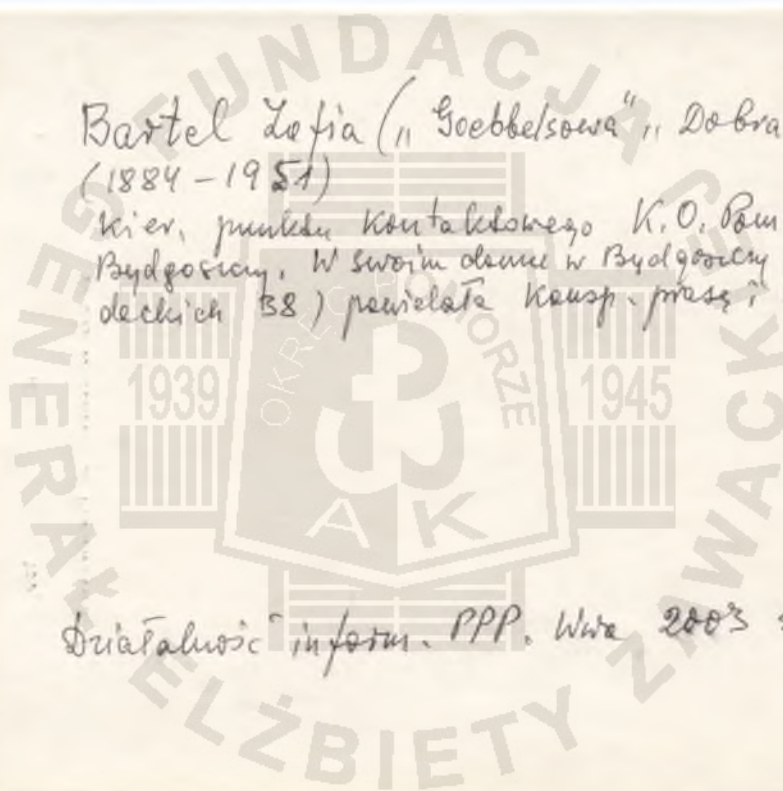 Bartel Zofia („Goebbelsowa" „Dobra
(1884 – 1951)
Kier. punktu kontaktowego K.O. Pom
Bydgoszczy. W swoim domu w Bydgoszczy
deckich 38) powielała konsp. prasę i
Działalność inform. PPP. Wwa 2003
FUNDACJA
GENERAŁ ELŻBIETY ZAWACKIEJ
OKRĘG POMORZE
1939
1945
AK